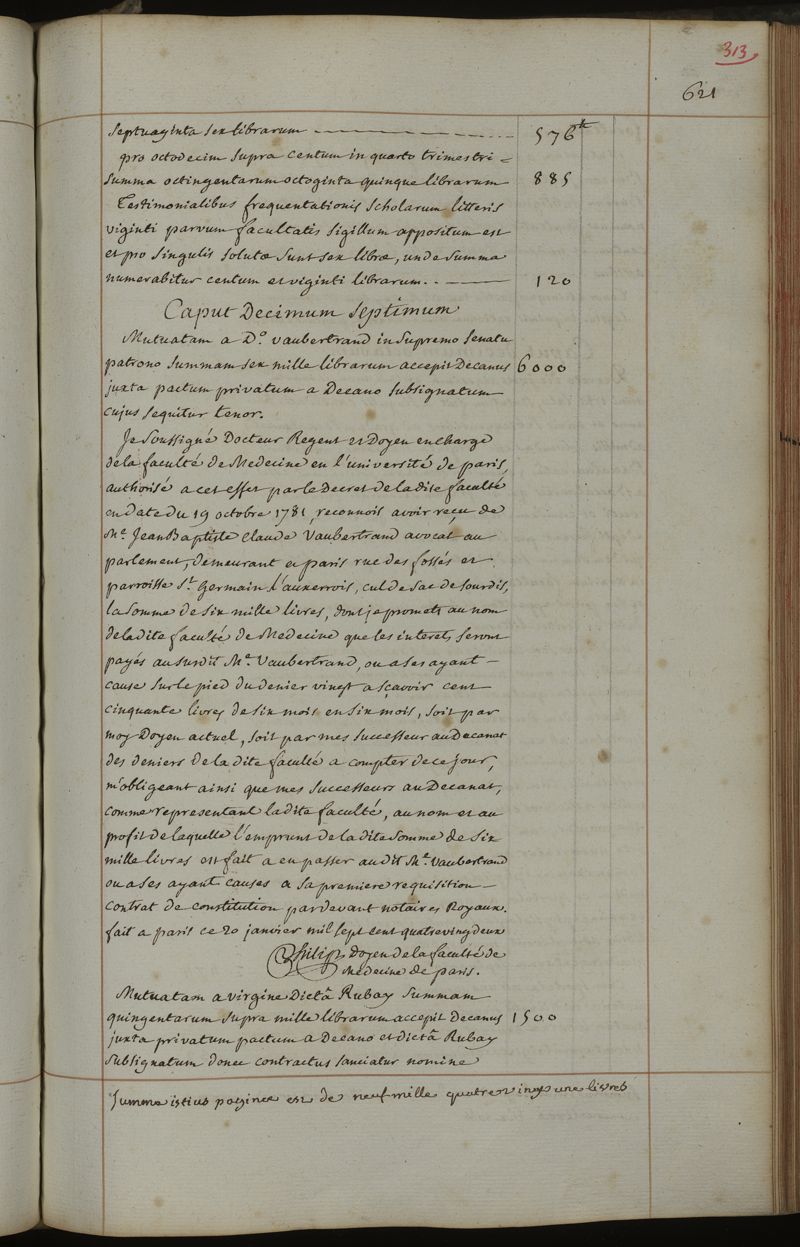 313
621
septuaginta sex librarum 576 tt
pro octodecim supra centum in quarto trimestri =
summa octingentarum octoginta quinque librarum 885
Testimonialibus frequentationis scholarum litteris
viginti parvum facultatis sigillum appositum est
et pro singulis solutæ sunt sex libræ, unde summa
numerabitur centum et viginti librarum.. 120
Caput Decimum Septimum
Mutuatam a D.o Vaubertrand in Supremo Senatu
patrono summam sex mille librarum accepit Decanus 6000
juxta pactum privatum a Decano subsignatum
cujus sequitur tenor.
Je soussigné Docteur Regent et Doyen en charge
de la faculté de Medecine en l'université de paris,
authorisé a cet effet par le Decret de la dite faculté
en date du 19 octobre 1781, reconnois avoir reçu de
Me. Jean Baptiste Claude Vaubertrand avocat au
parlement, demeurant a paris rue des fossés et
parroisse St. Germain L'auxerrois, cul de sac de sourdis,
la somme de six mille livres, dont je promets au nom
de la dite faculté de Medecine que les interets seront
payés au susdit Me. Vaubertrand, ou a ses ayant -
cause sur le pied du denier vingt a sçavoir cent
cinquante livres de six mois en six mois, soit par
moy Doyen actuel, soit par mes successeur au Decanat
des deniers de la dite faculté a compter de ce jour,
m'obligeant ainsi que mes successeurs au Decanat,
comme representant la dite faculté, au nom et au
profit de laquelle l'emprunt de la dite somme de six
mille livres est fait a en passer au dit Me. Vaubertrand
ou a ses ayant causes a sa premiere requisition -
contrat de constitution pardevant notaires Royaux.
fait a paris ce 20 janvier mil sept cent quatrevingdeux
Philip Doyen de la faculté de
Medecine de paris.
Mutuatam a virgine Dictâ Rubay summam
quingentarum supra mille librarum accepit Decanus 1500
juxta privatum pactum a Decano et dictâ Rubay
subsignatum donec contractus sanciatur nomine
Summa istius paginæ est de neuf mille quatre vingt une livres